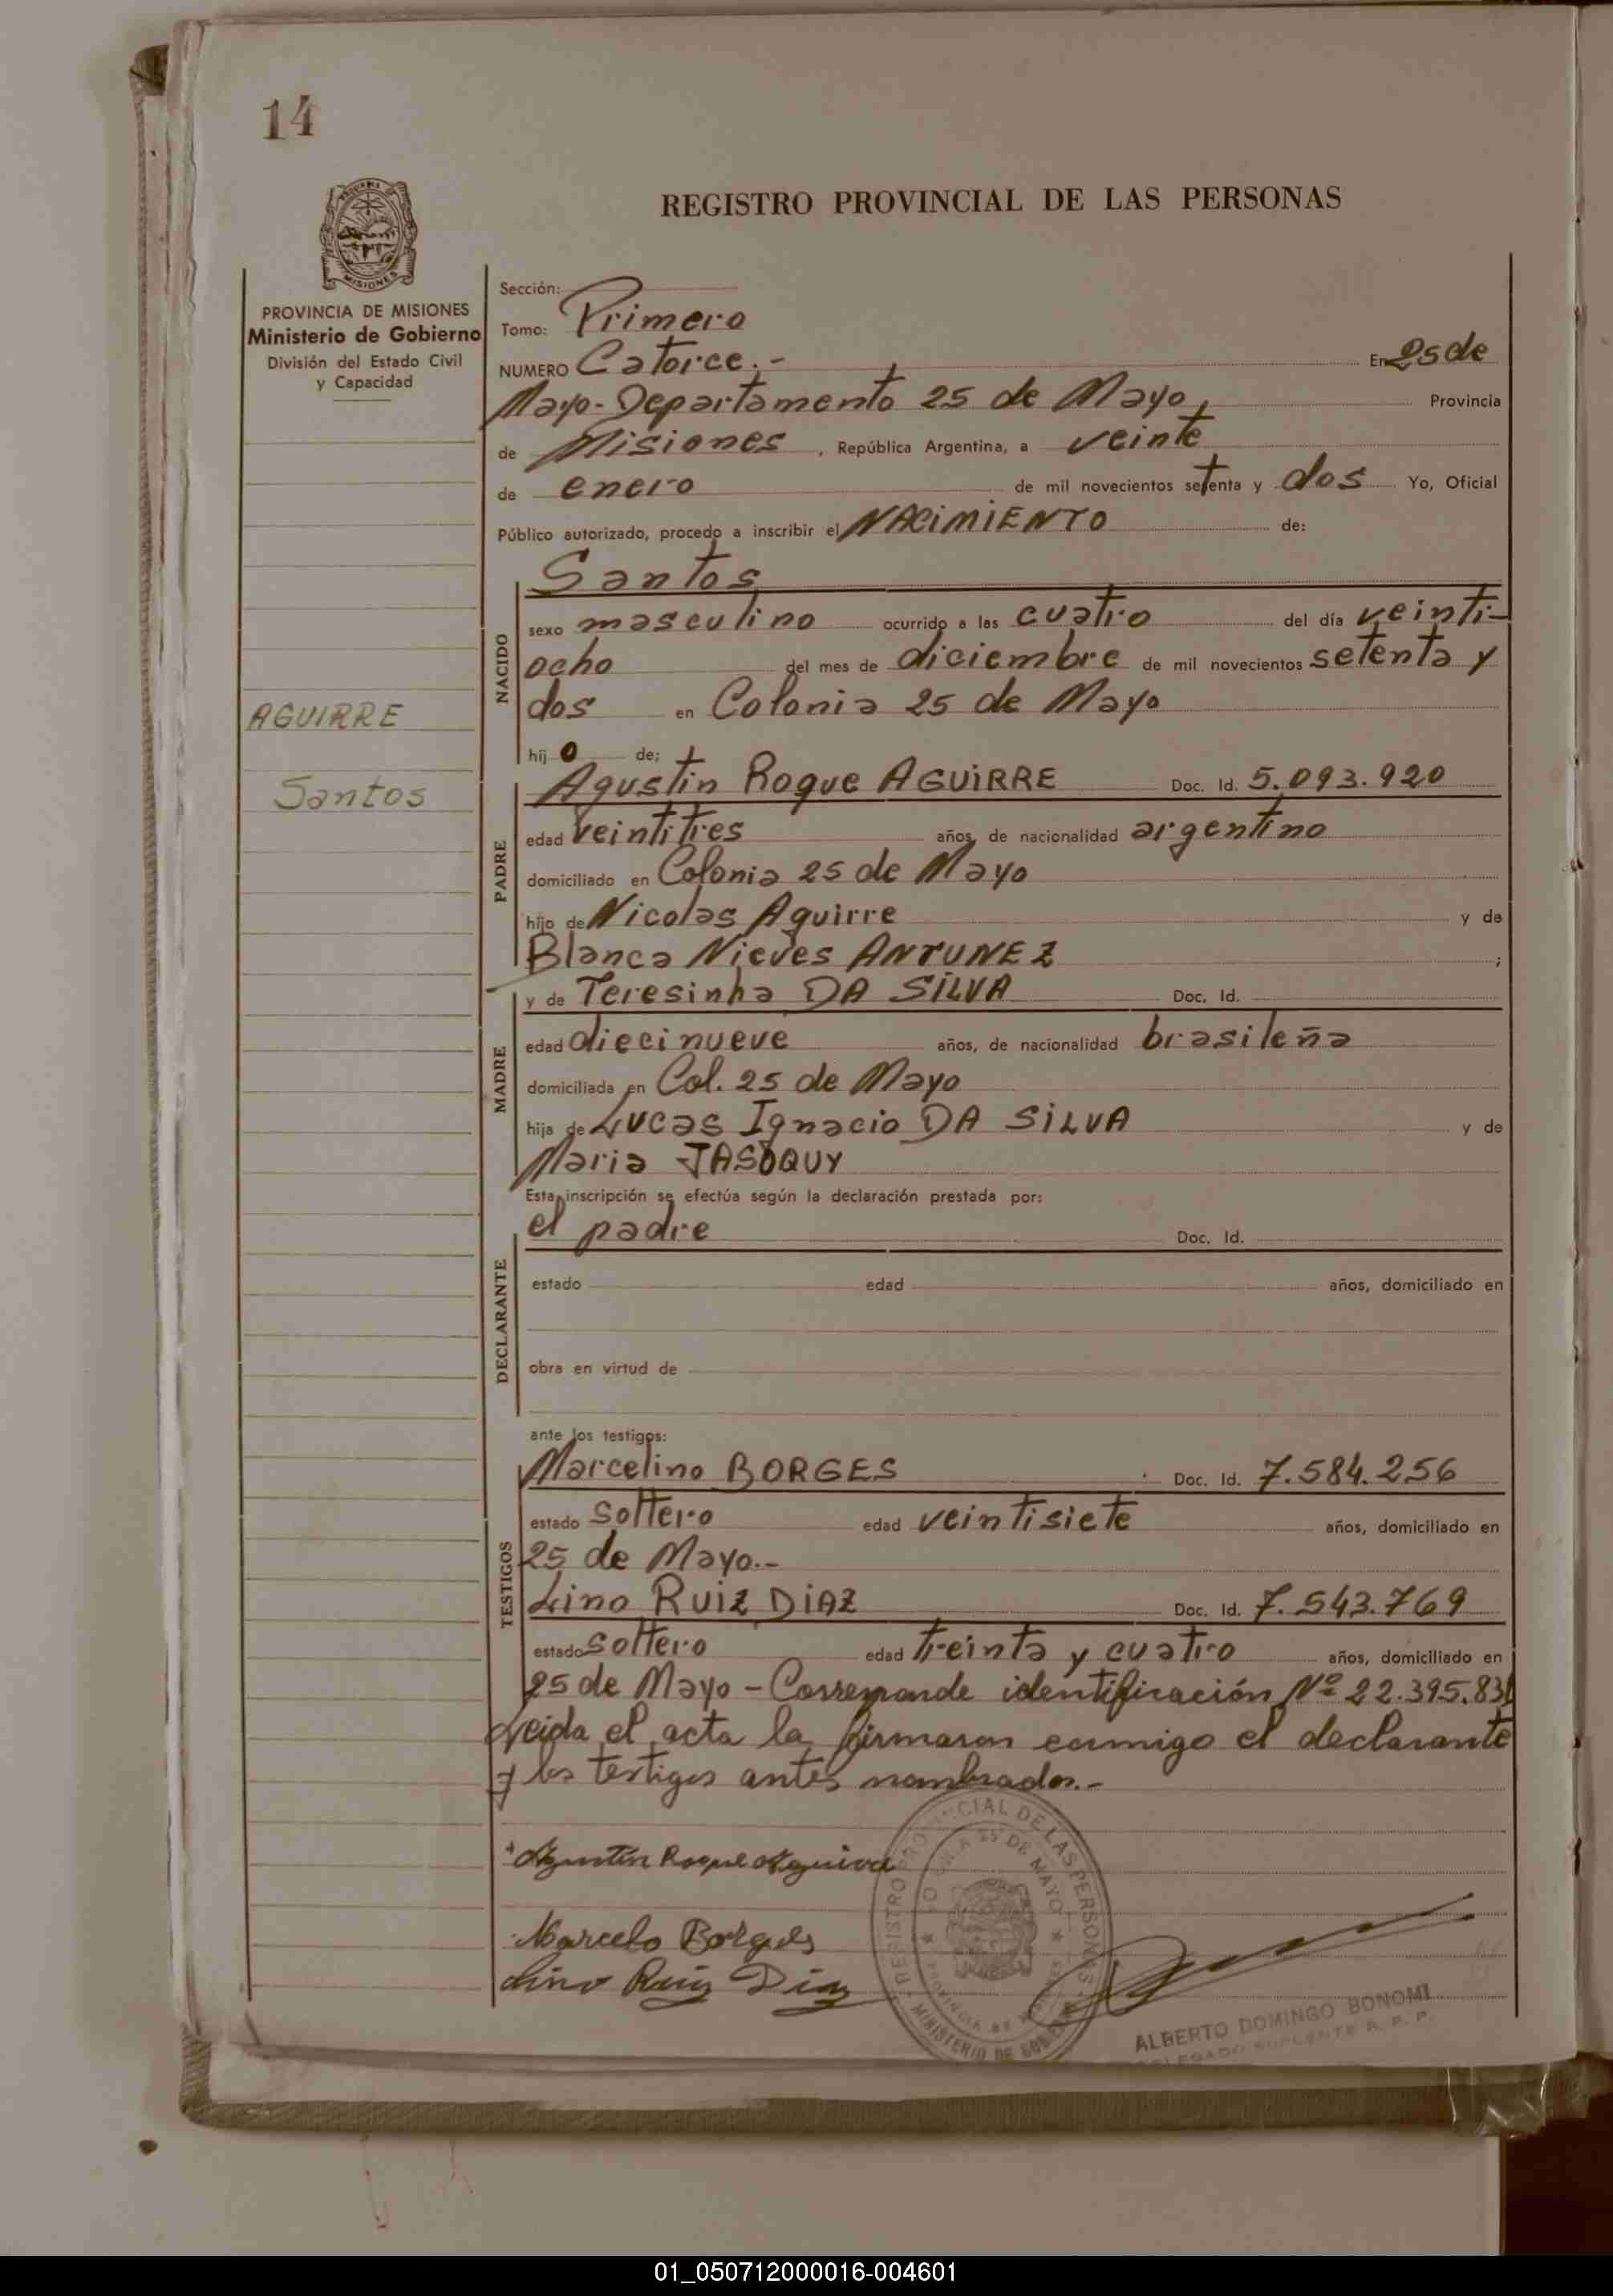 14
REGISTRO PROVINCIAL DE LAS PERSONAS
MISIONES
PROVINCIA DE MISIONES
Ministerio de Gobierno
División del Estado Civil
y Capacidad
AGUIRRE
Santos
Sección:
Tomo: Primero
NUMERO Catorce.- En 25 de
Mayo - Departamento 25 de Mayo, Provincia
de Misiones, República Argentina, a veinte
de enero de mil novecientos setenta y dos Yo, Oficial
Público autorizado, procedo a inscribir el NACIMIENTO de:
NACIDO
Santos
sexo masculino ocurrido a las cuatro del día veinti-
ocho del mes de diciembre de mil novecientos setenta y
dos en Colonia 25 de Mayo
hijo de;
PADRE
Agustin Roque AGUIRRE Doc. Id. 5.093.920
edad veintitres años, de nacionalidad argentino
domiciliado en Colonia 25 de Mayo
hijo de Nicolas Aguirre y de
Blanca Nieves ANTUNEZ ;
MADRE
y de Teresinha DA SILVA Doc. Id.
edad diecinueve años, de nacionalidad brasileña
domiciliada en Col. 25 de Mayo
hija de Lucas Ignacio DA SILVA y de
Maria JASOQUY
Esta inscripción se efectúa según la declaración prestada por:
DECLARANTE
el padre Doc. Id.
estado edad años, domiciliado en
obra en virtud de
ante los testigos:
TESTIGOS
Marcelino BORGES Doc. Id. 7.584.256
estado soltero edad veintisiete años, domiciliado en
25 de Mayo.-
Lino RUIZ DIAZ Doc. Id. 7.543.769
estado soltero edad treinta y cuatro años, domiciliado en
25 de Mayo - Corresponde identificación Nº 22.395.831
Leida el acta la firmaron conmigo el declarante
y los testigos antes nombrados.-
Agustin Roque Aguirre
Marcelo Borges
Lino Ruiz Diaz
REGISTRO PROVINCIAL DE LAS PERSONAS
25 DE MAYO
PROVINCIA DE
MINISTERIO DE
ALBERTO DOMINGO BONOMI
DELEGADO SUPLENTE R. P. P.
01_050712000016-004601